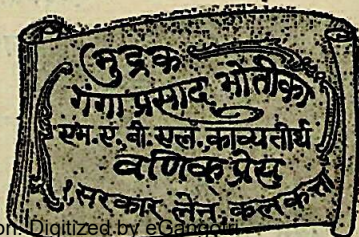 मुद्रक
गंगा प्रसाद भोतीका
एम.ए.बी.एल.काव्यतीर्थ
वणिक् प्रेस
१ सरकार लेन, कलकत्ता
on. Digitized by eGangotri